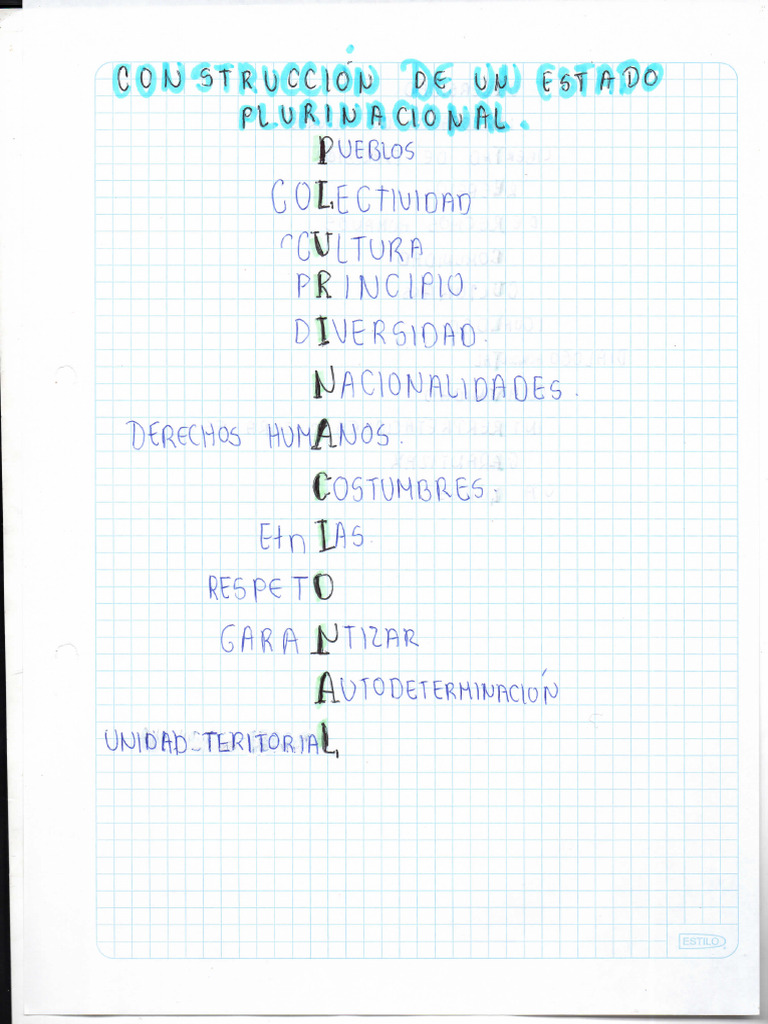 CONSTRUCCIÓN DE UN ESTADO
PLURINACIONAL.
PUEBLOS
COLECTIVIDAD
CULTURA
PRINCIPIO.
DIVERSIDAD.
NACIONALIDADES.
DERECHOS HUMANOS.
COSTUMBRES.
EtnIAS.
RESPETO
GARANTIZAR
AUTODETERMINACIÓN
UNIDAD-TERITORIAL
ESTILO